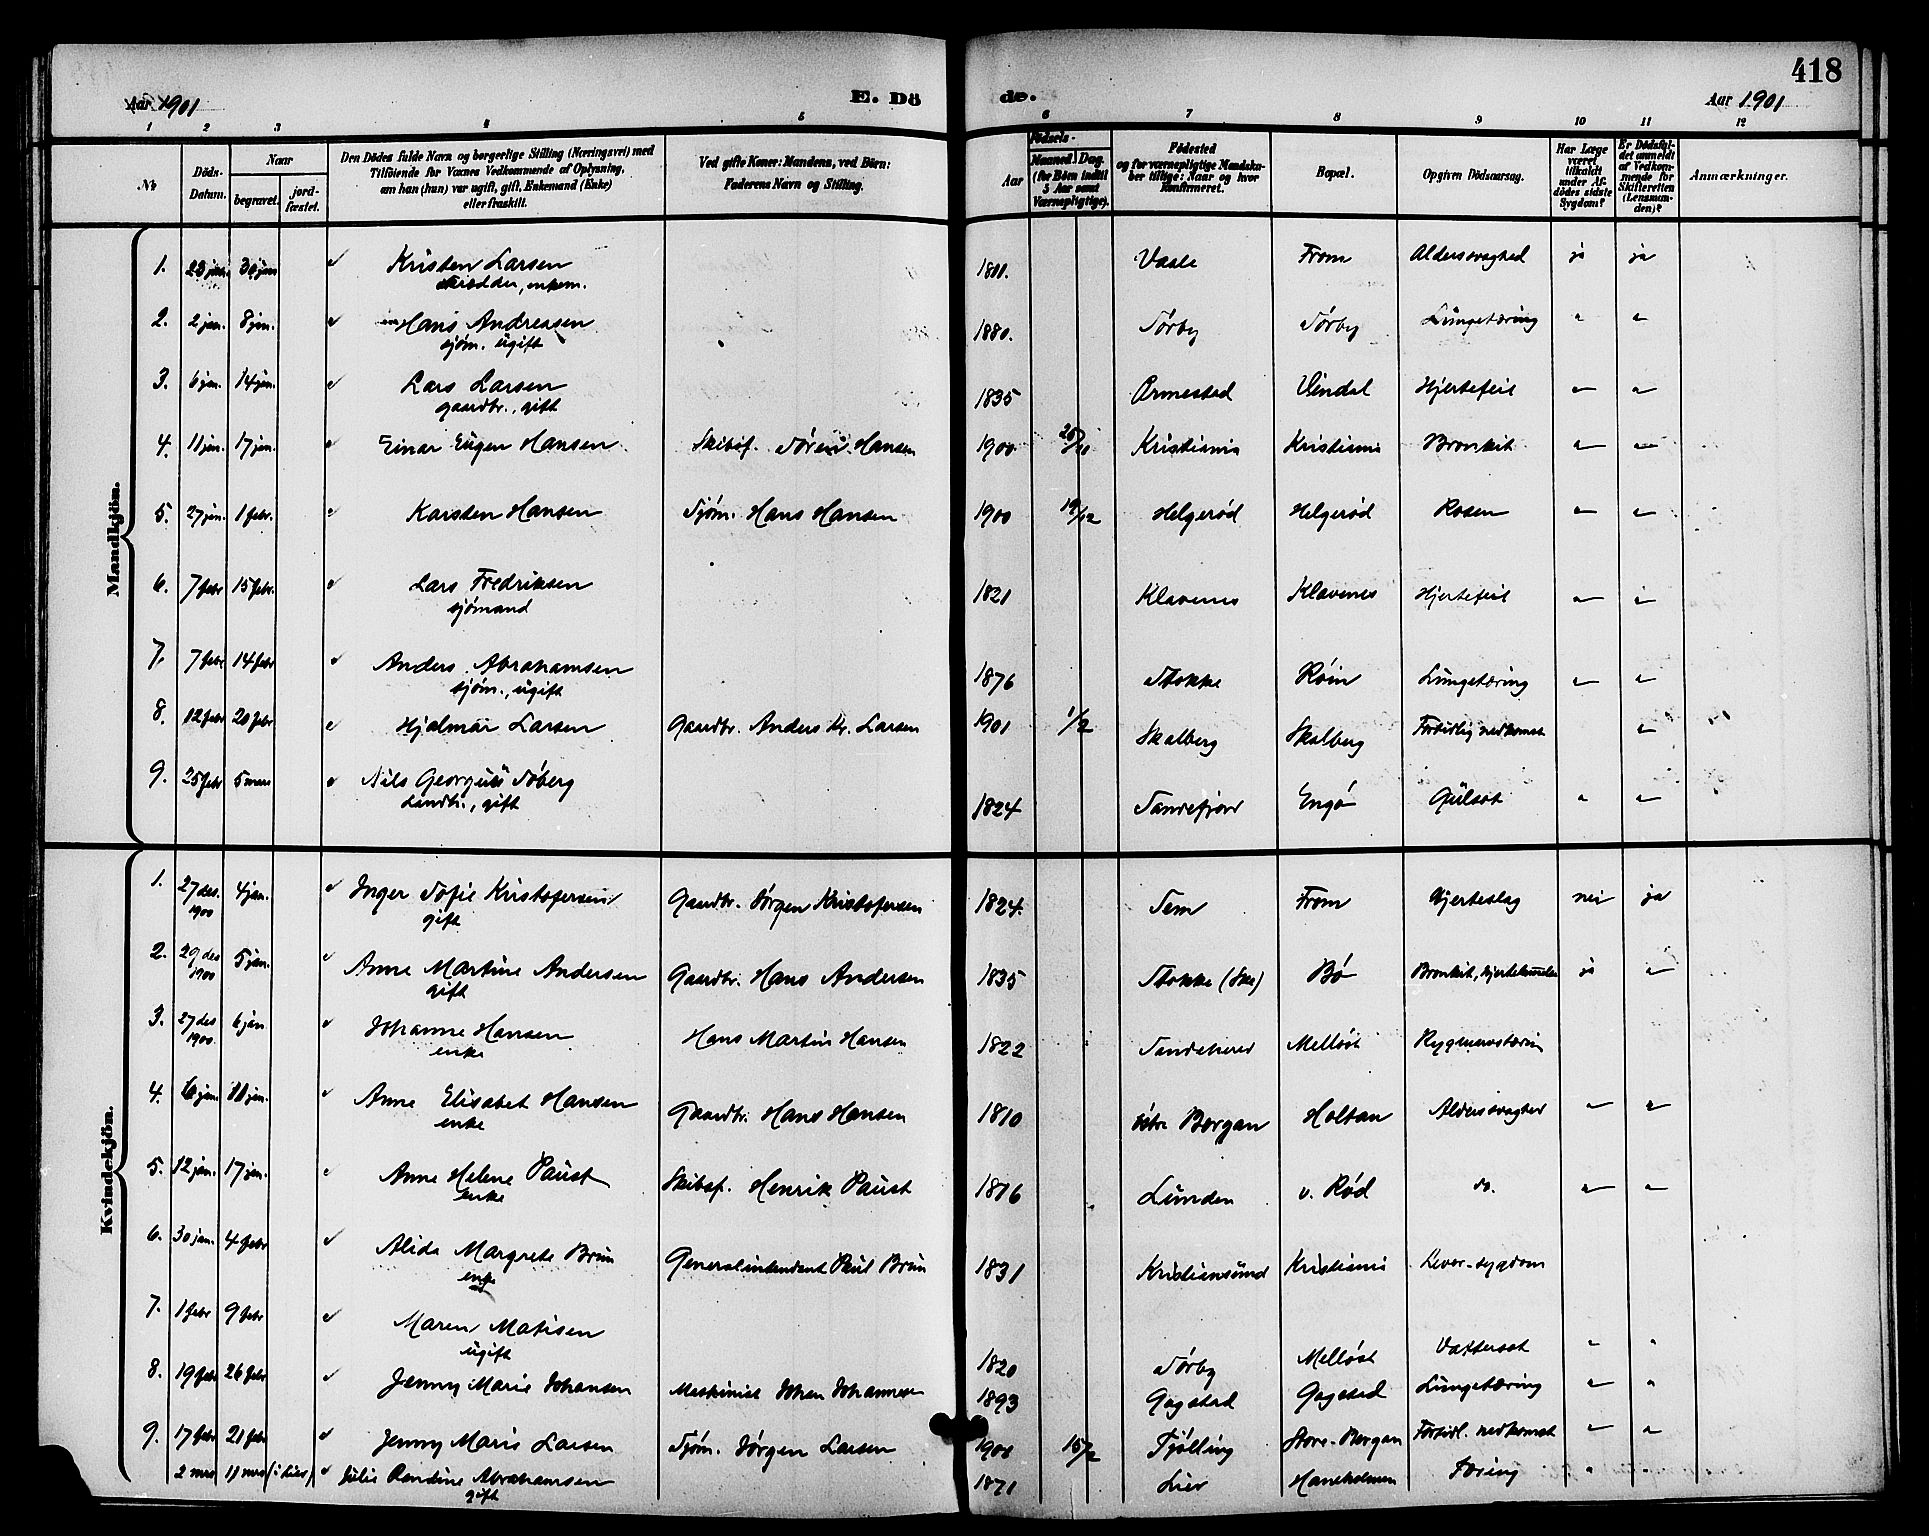 418
Aar 1901 E. Dö de. Aar 1901
1 2 3 4 5 6 7 8 9 10 11 12
No Döds-Datum. Naar begravet. jord-fæstet.
Den Dödes fulde Navn og borgerlige Stilling (Næringsvei) med
Tilföiende for Voxnes Vedkommende af Oplysning,
om han (hun) var ugift, gift, Enkemand (Enke)
eller fraskilt.
Ved gifte Koner: Mandens, ved Börn:
Faderens Navn og Stilling.
Födsels-
Aar Maaned. Dag.
(for Börn indtil
5 Aar samt
Værnepligtige).
Födested
og for værnepligtige Mandska-
ber tillige: Naar og hvor
Konfirmeret.
Bopæl.
Opgiven Dödsaarsag.
Har Læge
været
tilkaldt
under Af-
dödes sidste
Sygdom?
Er Dödsfal-
det anmeldt
af Vedkom-
mende for
Skifteretten
(Lensman-
den)?
Anmærkninger.
Mandkjön.
1. 23 jan. 30 jan Kristen Larsen 1811. Vaale From Aldersvaghed ja ja
skrædder, enkem.
2. 2 jan. 8 jan. Hans Andreasen 1880. Sørby Sørby Lungetæring " "
sjøm. ugift
3. 6 jan. 14 jan. Lars Larsen 1835 Ormestad Vindal Hjertefeil " "
gaardbr., gift
4. 11 jan. 17 jan. Einar Eugen Hansen Skibsf. Søren Hansen 1900 Kristiania Kristiania Bronkit " "
5. 27 jan. 1 febr. Karsten Hansen Sjøm. Hans Hansen 1900 19/12 Helgerød Helgerød Rosen " "
6. 7 febr 15 febr. Lars Fredriksen 1821 Klavenes Klavenes Hjertefeil " "
sjømand
7. 7 febr 14 febr Anders Abrahamsen 1876 Stokke Røin Lungetæring " "
sjøm., ugift
8. 12 febr 20 febr Hjalmar Larsen Gaardbr. Anders Kr. Larsen 1901 1/2 Skalberg Skalberg Fortidlig nedkomst "
9. 25 febr 5 mars Nils Georgius Søberg 1824 Sandefjord Engø Gulsot " "
Landbr., gift
Kvindekjön.
1. 27 des. 1900 4 jan. Inger Sofie Kristofersen Gaardbr. Jørgen Kristofersen 1824. Sem From Hjerteslag nei ja
gift
2. 29 des 1900 5 jan. Anne Martine Andersen Gaardbr. Hans Andersen 1835 Stokke (Ske) Bø Bronkit, ja "
gift
3. 27 des 1900. 6 jan Johanne Hansen Hans Martin Hansen 1822 Sandeherred Melløst Rygmarvstæring
enke
4. 6 jan. 11 jan. Anne Elisabet Hansen Gaardbr. Hans Hansen 1810 østre Bergan Holtan Aldersvaghed " "
enke
5. 12 jan. 17 jan. Anne Helene Paust Skibsf. Henrik Paust 1816 Lunden v. Rød do. " "
enke
6. 30 jan. 4 febr Alida Margrete Brun Generalintendant Paul Brun 1831 Kristiansund Kristiania Lever-sygdom
enke
7. 1 febr 9 febr Maren Matisen 1820 Sørby Melløst Vattersot " "
ugift
8. 19 febr 26 febr Jenny Marie Johansen Maskinist Johan Johannesen 1893 Gogstad Gogstad Lungetæring " "
9. 17 febr 21 febr Jenny Marie Larsen Sjøm. Jørgen Larsen 15/2 Tjølling Store-Bergan Fortidl. nedkomst " "
2 mrs 11 mrs (i Lier) Julie Randine Abrahamsen 1871 Lier Haneholmen Tæring " "
gift